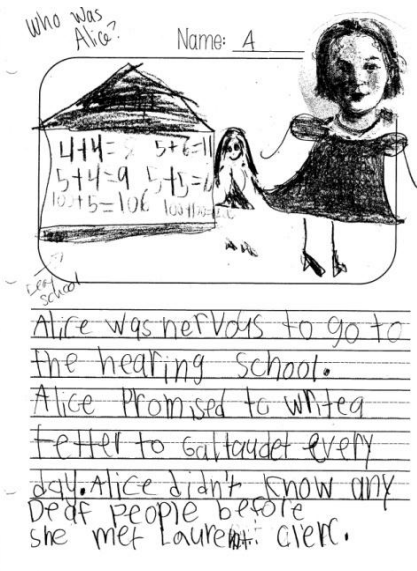 Who was
Alice?
Name: A
4+4= 5+6=11
5+4=9 5+5=
100+5=10
school
Alice was nervous to go to
the hearing school.
Alice Promised to write a
letter to Gallaudet every
day. Alice didn't know any
Deaf people before
she met Laurent Clerc.